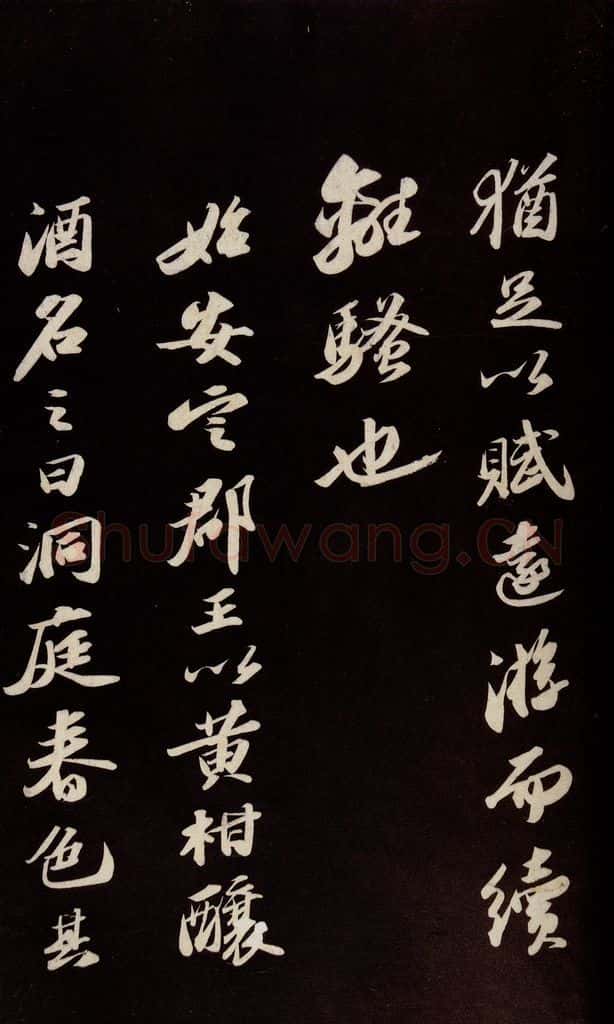 猶足以賦遠游而續
離騷也
始安定郡王以黄柑釀
酒名之曰洞庭春色其
Shufawang.CN